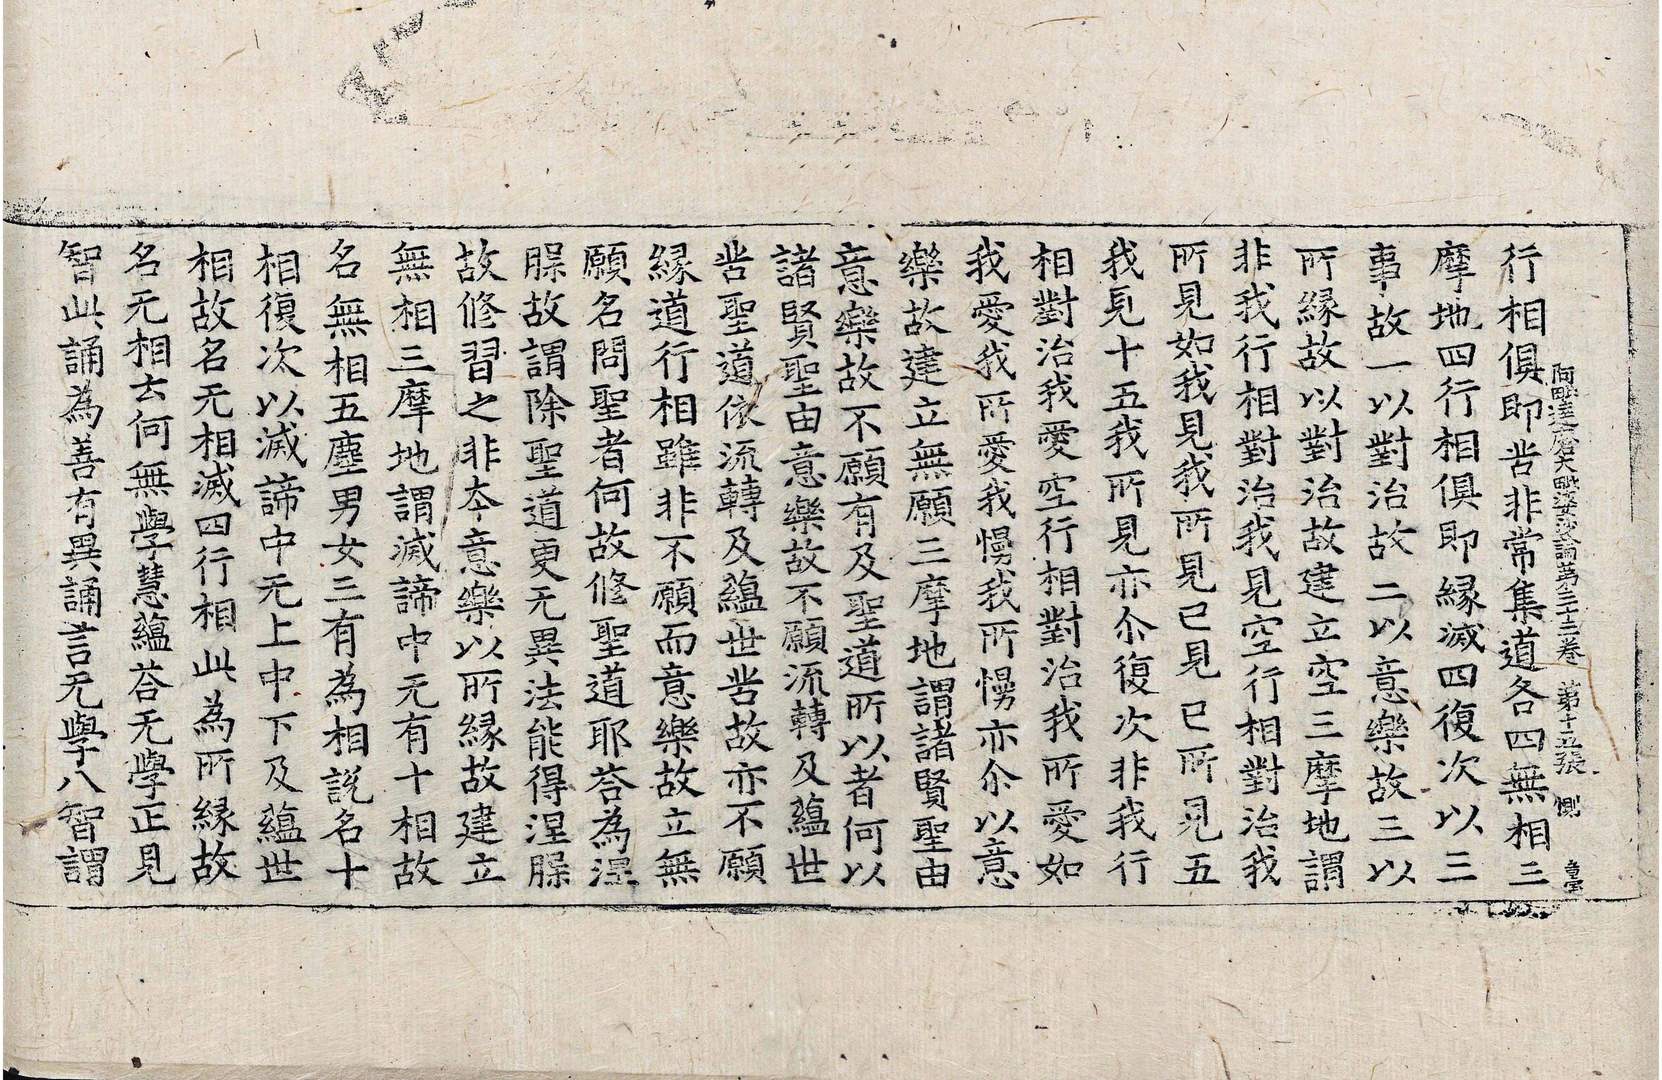 阿毗達磨大毗婆沙論第三十三卷 第十五張 惻
行相俱即苦非常集道各四無相三
摩地四行相俱即緣滅四復次以三
事故一以對治故二以意樂故三以
所緣故以對治故建立空三摩地謂
非我行相對治我見空行相對治我
所見如我見我所見已見已所見五
我見十五我所見亦尒復次非我行
相對治我愛空行相對治我所愛如
我愛我所愛我慢我所慢亦尒以意
樂故建立無願三摩地謂諸賢聖由
意樂故不願有及聖道所以者何以
諸賢聖由意樂故不願流轉及蘊世
苦聖道依流轉及蘊世苦故亦不願
緣道行相雖非不願而意樂故立無
願名問聖者何故修聖道耶荅為涅
槃故謂除聖道更无異法能得涅槃
故修習之非夲意樂以所緣故建立
無相三摩地謂滅諦中无有十相故
名無相五塵男女三有為相說名十
相復次以滅諦中无上中下及蘊世
相故名无相滅四行相此為所緣故
名无相云何無學慧蘊荅无學正見
智此誦為善有異誦言无學八智謂